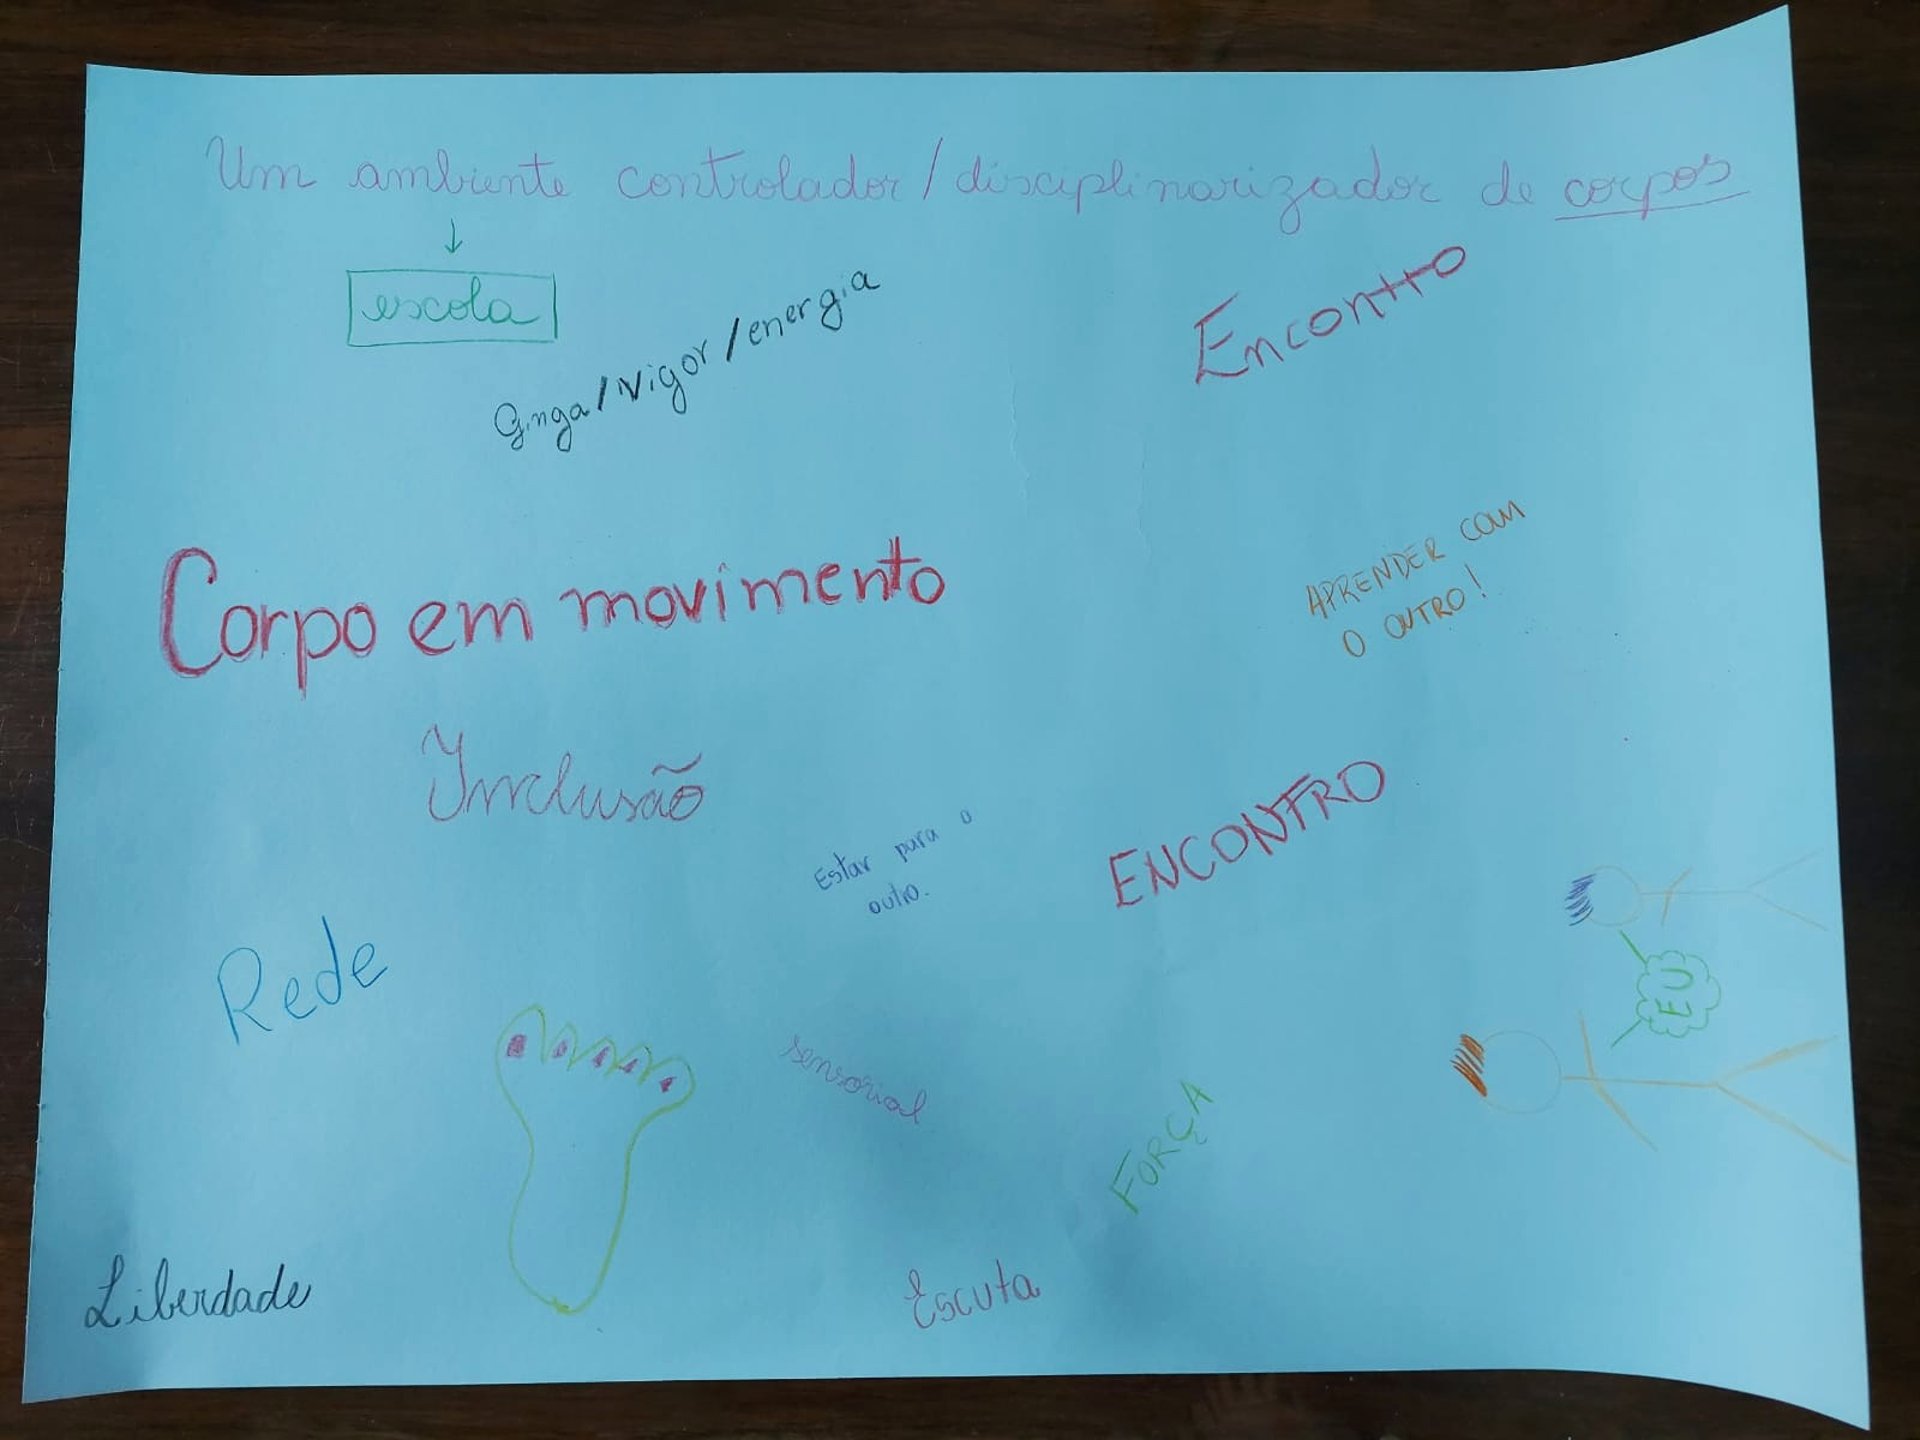 Um ambiente controlador/disciplinarizador de corpos
↓
escola
Ginga/Vigor/energia
Encontro
Corpo em movimento
APRENDER COM
O OUTRO!
Inclusão
Estar para o
outro.
ENCONTRO
Rede
EU
sensorial
FORÇA
Liberdade
Escuta